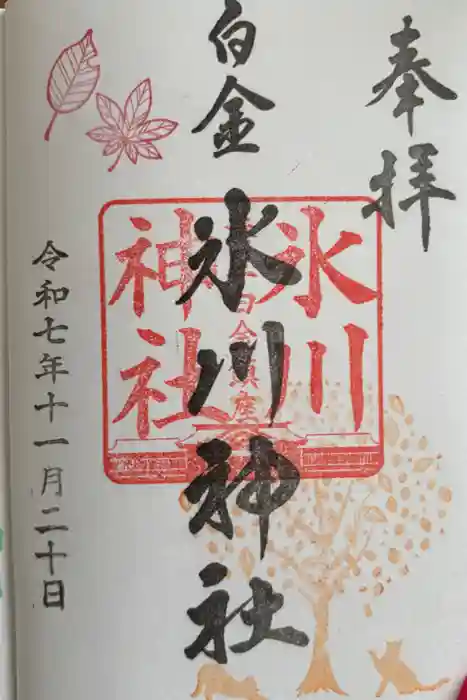 奉拝
白金
氷川神社
氷川
神社
令和七年十一月二十日